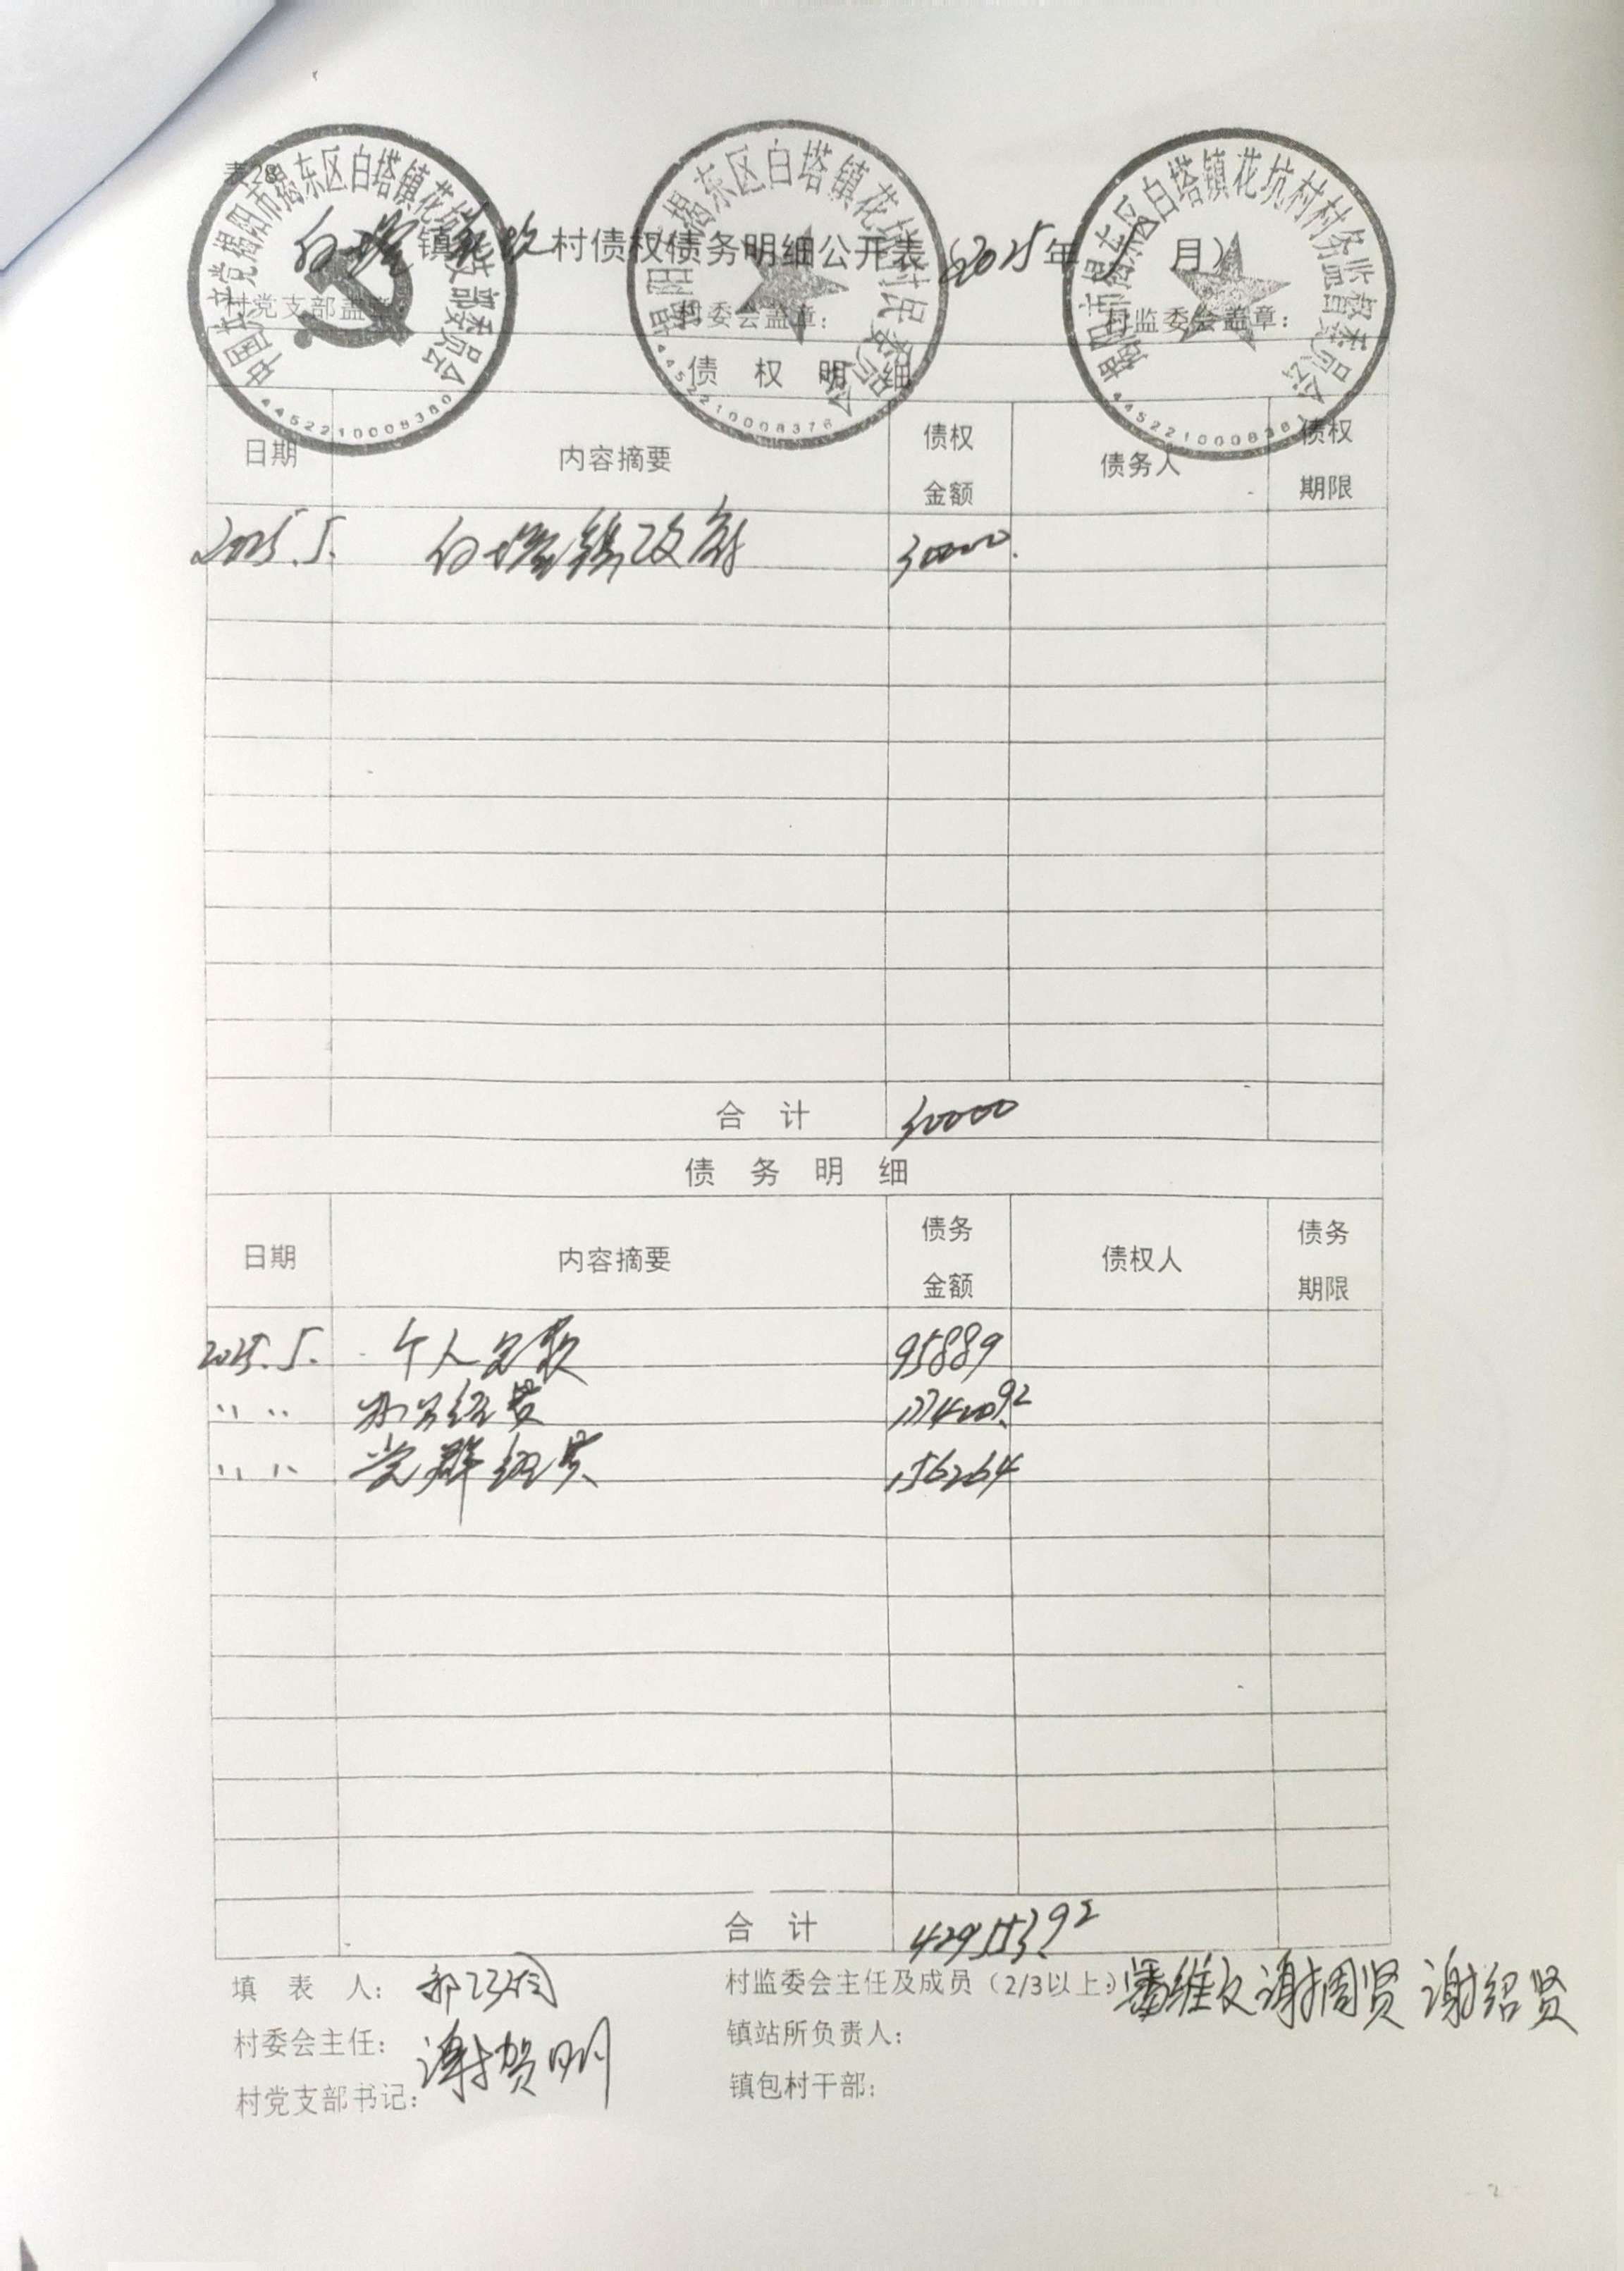 表28
中国共产党揭阳市揭东区白塔镇花坑村支部委员会
4452210008380
揭阳市揭东区白塔镇花坑村村民委员会
4452210008376
揭阳市揭东区白塔镇花坑村村务监督委员会
白塔镇花坑村债权债务明细公开表(2025年 月)
村党支部盖章: 村委会盖章: 村监委会盖章:
债 权 明 细
日期 内容摘要 债权金额 债务人 债权期限
2025.5. 白塔镇政府 30000.
合 计 30000
债 务 明 细
日期 内容摘要 债务金额 债权人 债务期限
2025.5. 个人 款 95889
" " 办公经费 177420.92
" " 党群经费 156264
合 计 429553.92
填 表 人: 村监委会主任及成员(2/3以上): 潘维文 谢周贤 谢绍贤
村委会主任: 谢贺明 镇站所负责人:
村党支部书记: 镇包村干部: